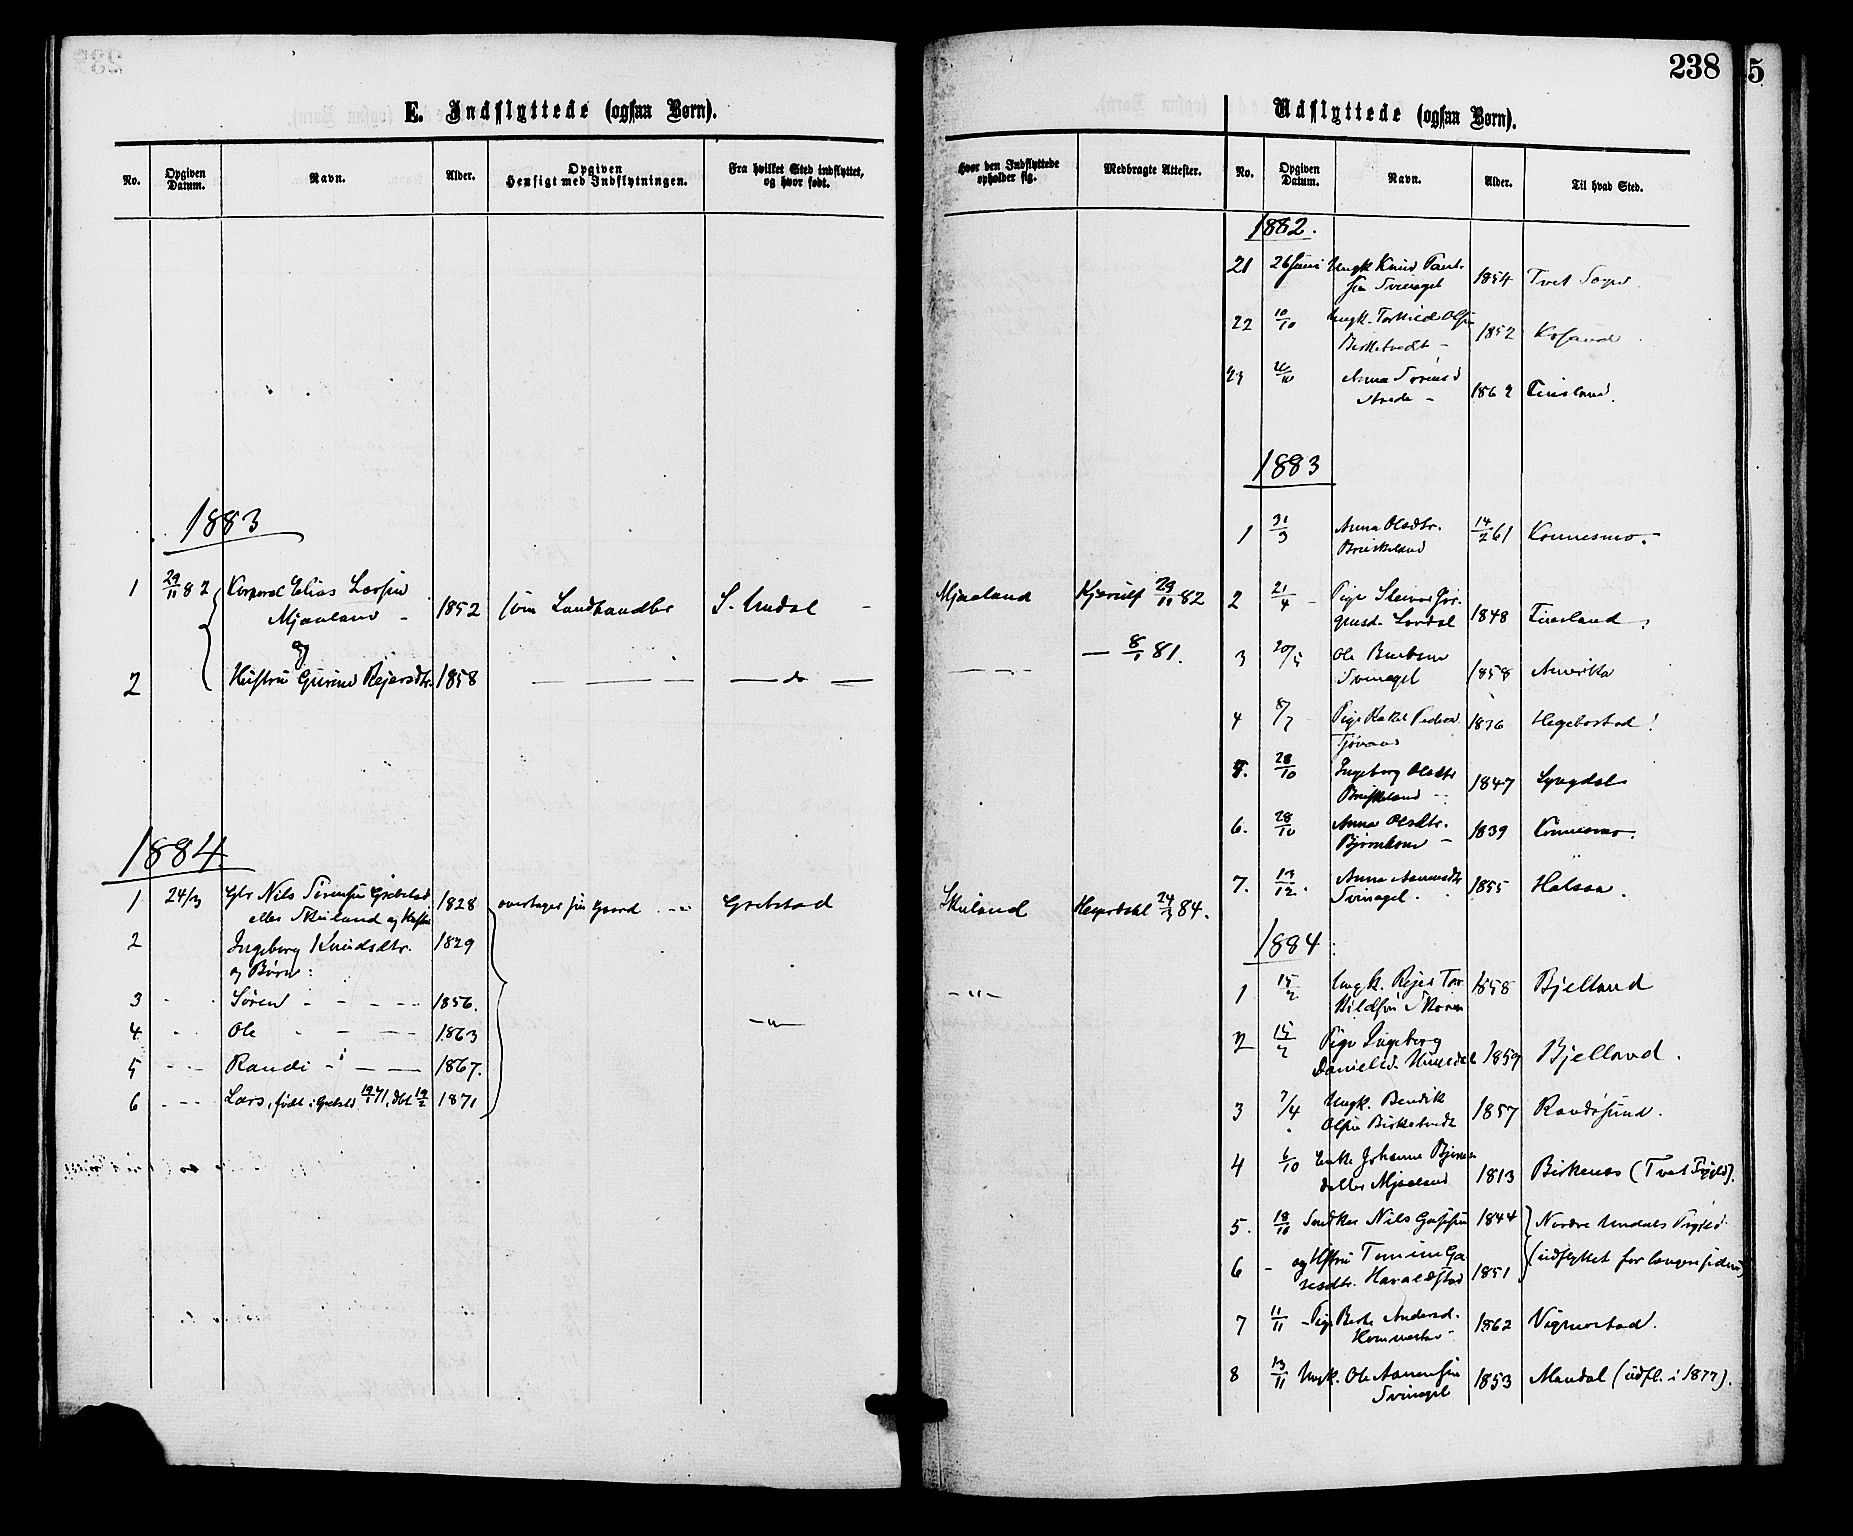 238
5
E. Indflyttede (ogsaa Børn).
No.
Opgiven Datum.
Navn.
Alder.
Opgiven Hensigt med Indflytningen.
Fra hvilket Sted indflyttet, og hvor født.
1883
1 29/11 82 Korporal Elias Larsen
Mjaaland - 1852 som Landhandler S. Undal -
og
2 Hustru Gurine Rejersdtr. 1858 — — — — do —
1884
1 24/3 Gbr Nils Sørensen Grebstad
eller Skuland og Hustru 1828 overtager sin Gaard Grebstad
2 Ingeborg Knudsdtr. 1829
og Børn:
3 Søren - - - - 1856.
4 Ole - - - 1863
5 Randi - - - 1867.
6 Lars, født i Grebstd 19/1 71, dbt 19/2 1871
Udflyttede (ogsaa Børn).
Hvor den Indflyttede opholder sig.
Medbragte Attester.
No.
Opgiven Datum.
Navn.
Alder.
Til hvad Sted.
Mjaaland Kjerulf 29/11 82
— 8/1 81.
Skuland 24/3 84.
- " -
1882.
21 26 Juni Ungk Knud
Svinagel 1854 Tvet Sogn
22 10/10 Ungk. Torkild Olsen
Birketvedt - 1852
23 Anna
1862 Finsland.
1883
1 31/3 Anna Olsdtr.
Bruskeland 14/2 61 Konnesmo. -
2 21/4 Pige
1848 Finsland
3 20/5 Ole
Svinagel 1858 Amerika
4 8/7 Pige Rakel
1876 Hegebostad
5. 28/10 Ingeborg Olsdtr
Bruskeland - 1847 Lyngdal
6. 28/10 Anna Olsdtr.
- 1839 Konnesmo.
7. 13/12. Anna Aanensdtr
Svinagel. 1855 Halsaa.
1884
1 15/2 Ungk. Rejer Tor-
kildsen 1858 Bjelland
2 15/2 Pige Ingeborg
Danielsd. 1859 Bjelland.
3 7/4 Ungk. Bendik
Olsen Birketvedt 1857 Randøsund.
4 6/10 Enke Johanne
Mjaaland 1813 Birkenes (Tvet Prgjld).
5. 18/10 Nils 1844 Nordre Undals Prgjld.
6 - og Hstru
Haraldstad 1851 (udflyttet for længere siden)
7 11/11 - Pige Berte Andersd.
Hommestad 1862 Vigmostad.
8 13/11 Ungk. Ole Aanensen
Svinagel 1853 Mandal (udfl. i 1877).